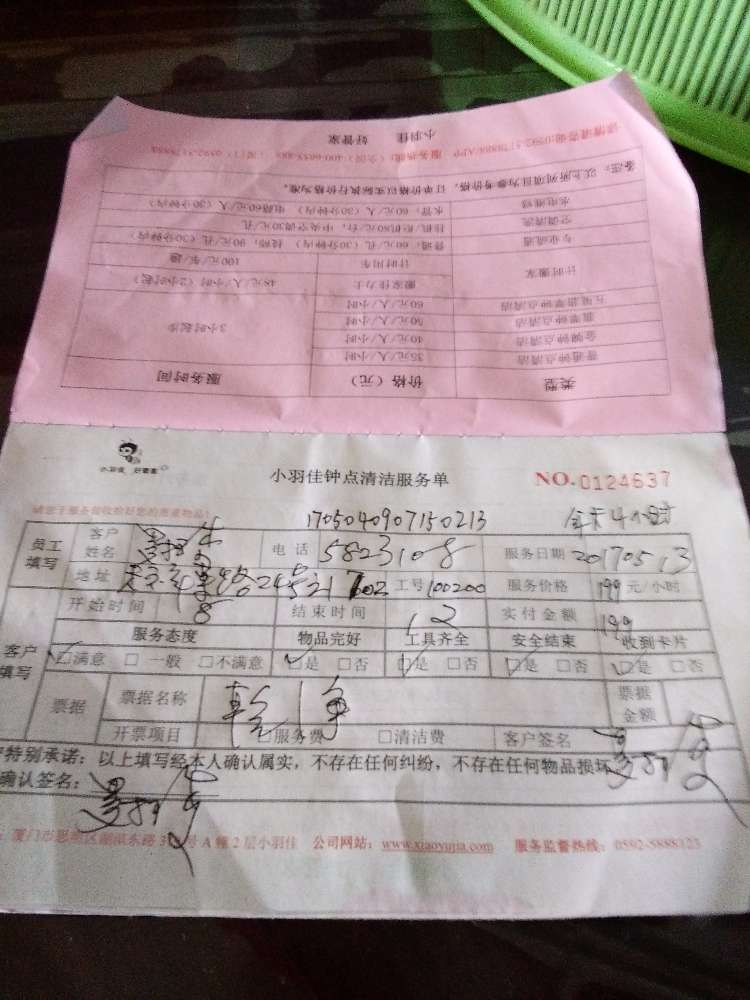 类型 价格(元) 服务时间
普通钟点清洁 35元/人/小时 3小时起步
金牌钟点清洁 40元/人/小时
翡翠钟点清洁 50元/人/小时
五星翡翠钟点清洁 60元/人/小时
计时搬家 搬家佳力士 48元/人/小时(2小时起)
计时用车 100元/车/趟
专业疏通 普通:60元/孔(30分钟内) 技师:90元/孔(30分钟内)
空调清洗 挂机/柜机80元/台,中央空调30元/孔
水电维修 水管:60元/人(30分钟内) 电路60元/人(30分钟内)
备注:以上所列项目为参考价格,订单价格以实际执行价格为准。
小羽佳 好管家
小羽佳 好管家
小羽佳钟点清洁服务单 NO.0124637
1705040907150213 4小时
员工填写 客户姓名 电话 5823108 服务日期 20170513
地址 工号 100200 服务价格 199 元/小时
开始时间 8 结束时间 12 实付金额 199
客户填写 服务态度 物品完好 工具齐全 安全结束 收到卡片
☑满意 □一般 □不满意 ☑是 □否 ☑是 □否 ☑是 □否 ☑是 □否
票据 票据名称 乾净 票据金额
开票项目 □服务费 □清洁费 客户签名
特别承诺:以上填写经本人确认属实,不存在任何纠纷,不存在任何物品损坏
确认签名:
厦门市思明区湖滨东路 号A幢2层小羽佳 公司网站:www.xiaoyujia.com 服务监督热线:0592-5888123